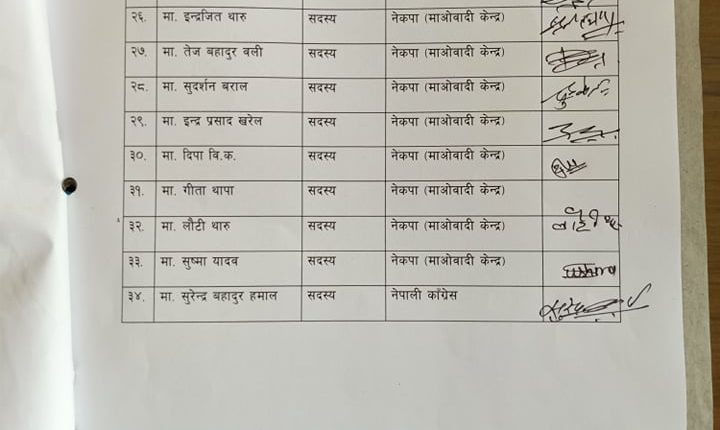 २६. मा. इन्द्रजित थारु सदस्य नेकपा (माओवादी केन्द्र)
२७. मा. तेज बहादुर वली सदस्य नेकपा (माओवादी केन्द्र)
२८. मा. सुदर्शन बराल सदस्य नेकपा (माओवादी केन्द्र)
२९. मा. इन्द्र प्रसाद खरेल सदस्य नेकपा (माओवादी केन्द्र)
३०. मा. दिपा बि.क. सदस्य नेकपा (माओवादी केन्द्र)
३१. मा. गीता थापा सदस्य नेकपा (माओवादी केन्द्र)
३२. मा. लौटी थारु सदस्य नेकपा (माओवादी केन्द्र)
३३. मा. सुष्मा यादव सदस्य नेकपा (माओवादी केन्द्र)
३४. मा. सुरेन्द्र बहादुर हमाल सदस्य नेपाली काँग्रेस